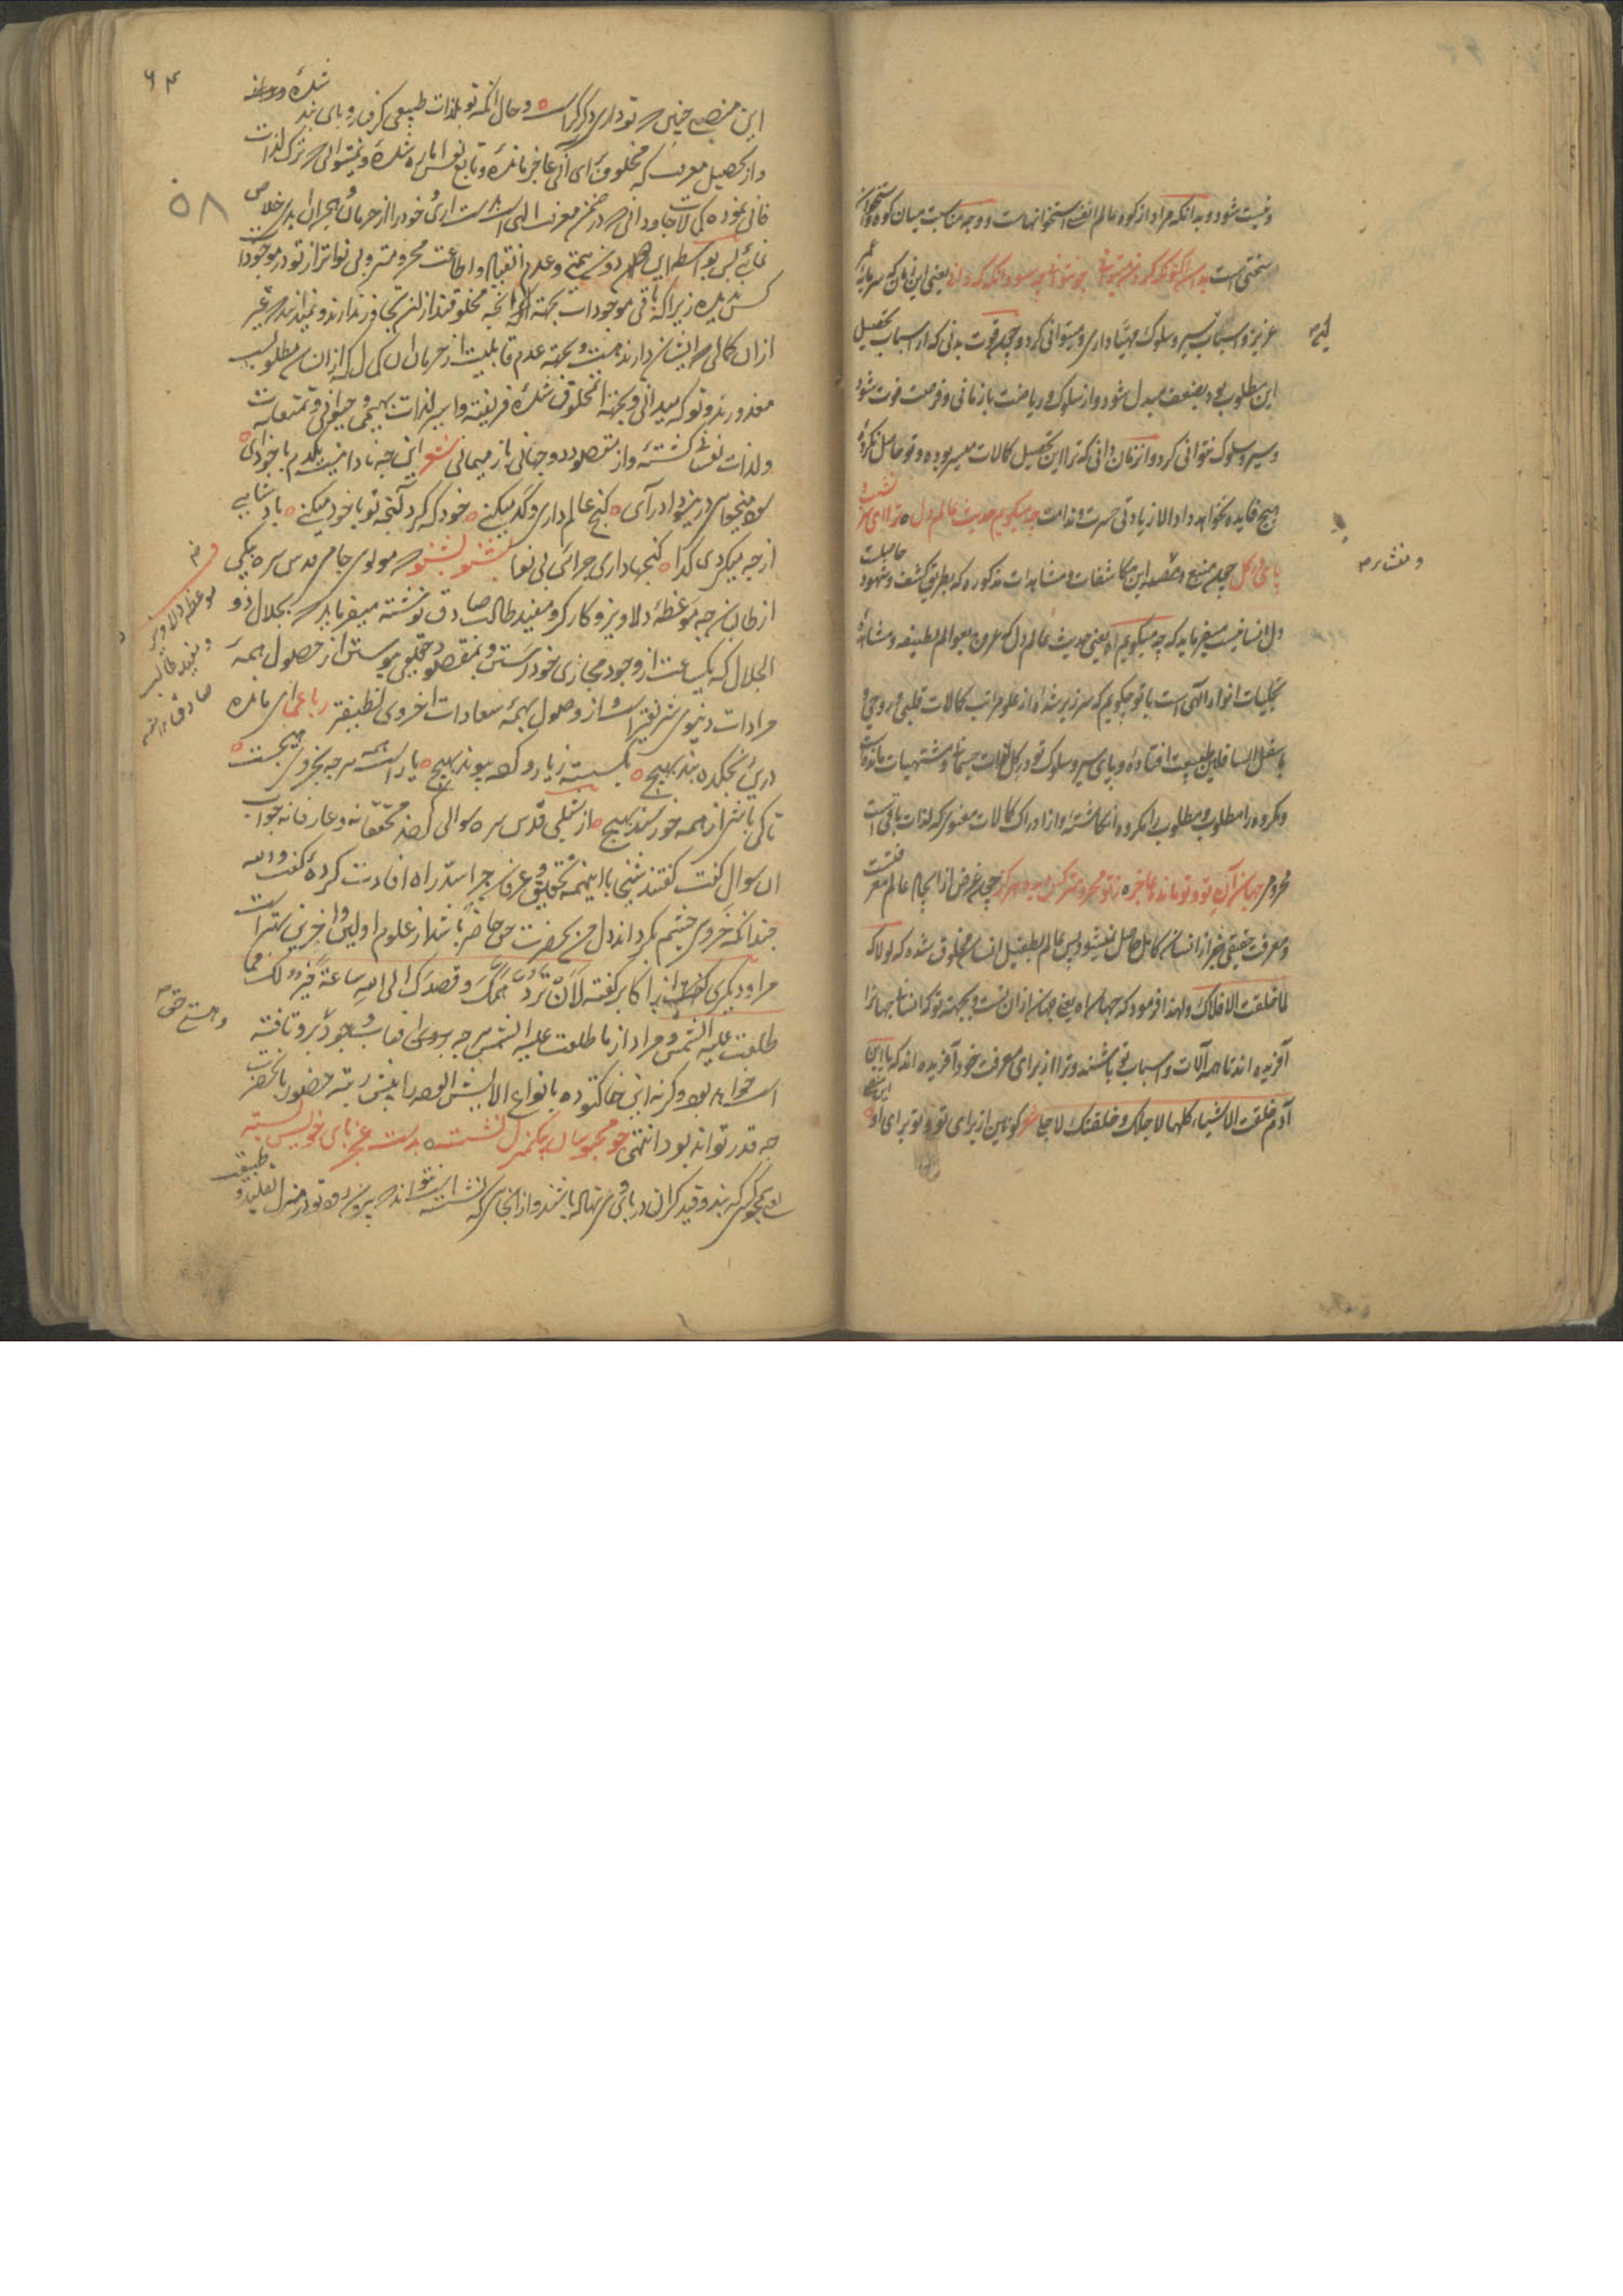 و نیست شود و بدانکه مراد از کوه عالم انفس استخوانهاست و وجه مناسبت میان کوه و استخوان
سختی است بدان اکنون که کردن میتوانی چو نتوانی چه سود آنگه که دانی یعنی این زمان که سرمایهٔ عمر
عزیز و اسباب سیر و سلوک مهیا داری و میتوانی کرد و چون قوت بدنی که از اسباب تحصیل
این مطلوب بود بضعف مبدل شود و از سلوک و ریاضت باز مانی و فرصت فوت شود
و سیر و سلوک نتوانی کرد و آنزمان دانی که ترا این تحصیل کمالات میسر بوده و تو حاصل نکردهٔ
هیچ فایده نخواهد داد الا زیادتی حسرت و ندامت چه میگویم حدیث عالم دل ترا ای سر نشیب و
پای در گل چون منبع و مقصد این مکاشفات و مشاهدات مذکوره که بطریق کشف و شهود حاصلست
دل انسانیست میفرماید که چه میگویم اه یعنی حدیث عالم دل که عروج بعوالم لطیفه و مشاهدهٔ
تجلیات انوار الهی است با تو چگویم که سر زیر شده از علو مراتب کمالات قلبی و روحی
باسفل السافلین طبیعت افتادهٔ و پای سیر و سلوک تو در گل لذات جسمانی و مشتهیات مانده است
و مکروه را مطلوب و مطلوب را مکروه انگاشته و از ادراک کمالات معنوی که لذات باقی است
محروم جهان آن تو و تو مانده عاجز ز تو محروم تر کس دیده هرگز چون غرض از ایجاد عالم معرفتست
و معرفت حقیقی جز از انسان کامل حاصل نمیشود پس عالم بطفیل انسان مخلوق شده که لولاک
لما خلقت الافلاک و لهذا فرمود که جهان اه یعنی جهان از آن تست و بجهته تو که انسانی جهانرا
آفریده اند تا همه آلات و اسباب تو باشند و ترا از برای معرفت خود آفریده اند که یا ابن
آدم خلقت الاشیاء کلها لاجلک و خلقتک لاجلی شعر کونین از برای تو و تو برای او
۶۴
۵۸
این منصب چنین که تو داری دگر کراست و حال آنکه تو بلذات طبیعی گرفتار و پای بند شدهٔ
و از تحصیل معرفت که مخلوق برای آنی عاجز ماندهٔ و تابع نفس اماره شدهٔ و نمیتوانی که ترک لذات
فانی نموده کمالات جاودانی که در ضمن معرفت الهی است بدست آری و خود را از حرمان و هجران ابدی خلاص
نمائی پس بواسطه این دون همتی و عدم انقیاد و اطاعت محرومتر و بی نواتر از تو در موجودات
کس ندیده زیرا که باقی موجودات بجهته آنچه مخلوقند از آن تجاوز ندارند و نمیدانند که غیر
از آن کمالی که ایشان دارند هست و بجهته عدم قابلیت از حرمان آن کمال که از انسان مطلوبست
معذورند و تو که میدانی و بجهته آن مخلوق شدهٔ فریفته و اسیر لذات بهیمی و حیوانی و تمتعات
و لذات نفسانی گشته و از مقصود دو جهانی باز میمانی شعر این چه نادانیست یکدم با خود آی
سود میخواهی در سودا درآی گنج عالم داری و گد میکنی خود که کرد آنچه تو با خود میکنی پادشاهی
از چه میگردی گدا گنجها داری چرائی بی نوا بشنو بشنو که مولوی جامی قدس سره بیکی
از طالبان چه موعظهٔ دلاویز و کارگر و مفید طالب صادق نوشته میفرماید که بجلال ذو
الجلال که یکساعت از وجود مجازی خود رستن و بمقصود حقیقی پیوستن از حصول همهٔ
مرادات دنیوی شریفتر است و از وصول بهمهٔ سعادات اخروی لطیفتر رباعی ای مانده
درین بتکده بند بهیچ بگسسته ز یار و کرده پیوند بهیچ یار است همه هر چه بجز وی هیچست
تا کی باشی از همه خورسند بهیچ از شبلی قدس سره سوالی کردند محققانه و عارفانه جواب
آن سوال گفت گفتند شیخا با اینهمه تحقیق و عرفان چرا سد راه افادت کردهٔ گفت والله
چندانکه خروس چشم بگرداند دل من بحضرت حق حاضر باشد از علوم اولین و آخرین بهتر است
مرا و دیگری گفت از اکابر گفته لان ترد همک و قصدک الی الله ساعة خیر لک مما
طلعت علیه الشمس و مراد از ما طلعت علیه الشمس هر چه بروی آفتاب وجود برو تافته
است خواهد بود و گرنه این خاکتوده بانواع الایش آلوده را پیش رتبه حضور با حضرت
چه قدر تواند بود انتهی چو محبوسان بیکمنزل نشسته بدست عجز پای خویش بسته
ای محبوس که بند و قید گران در پای وی نهاده باشند و از انجائی که نشسته است نتواند که بیرون رود تو در منزل تقلید و
موعظه دلاویز
و مفید طالب
صادق